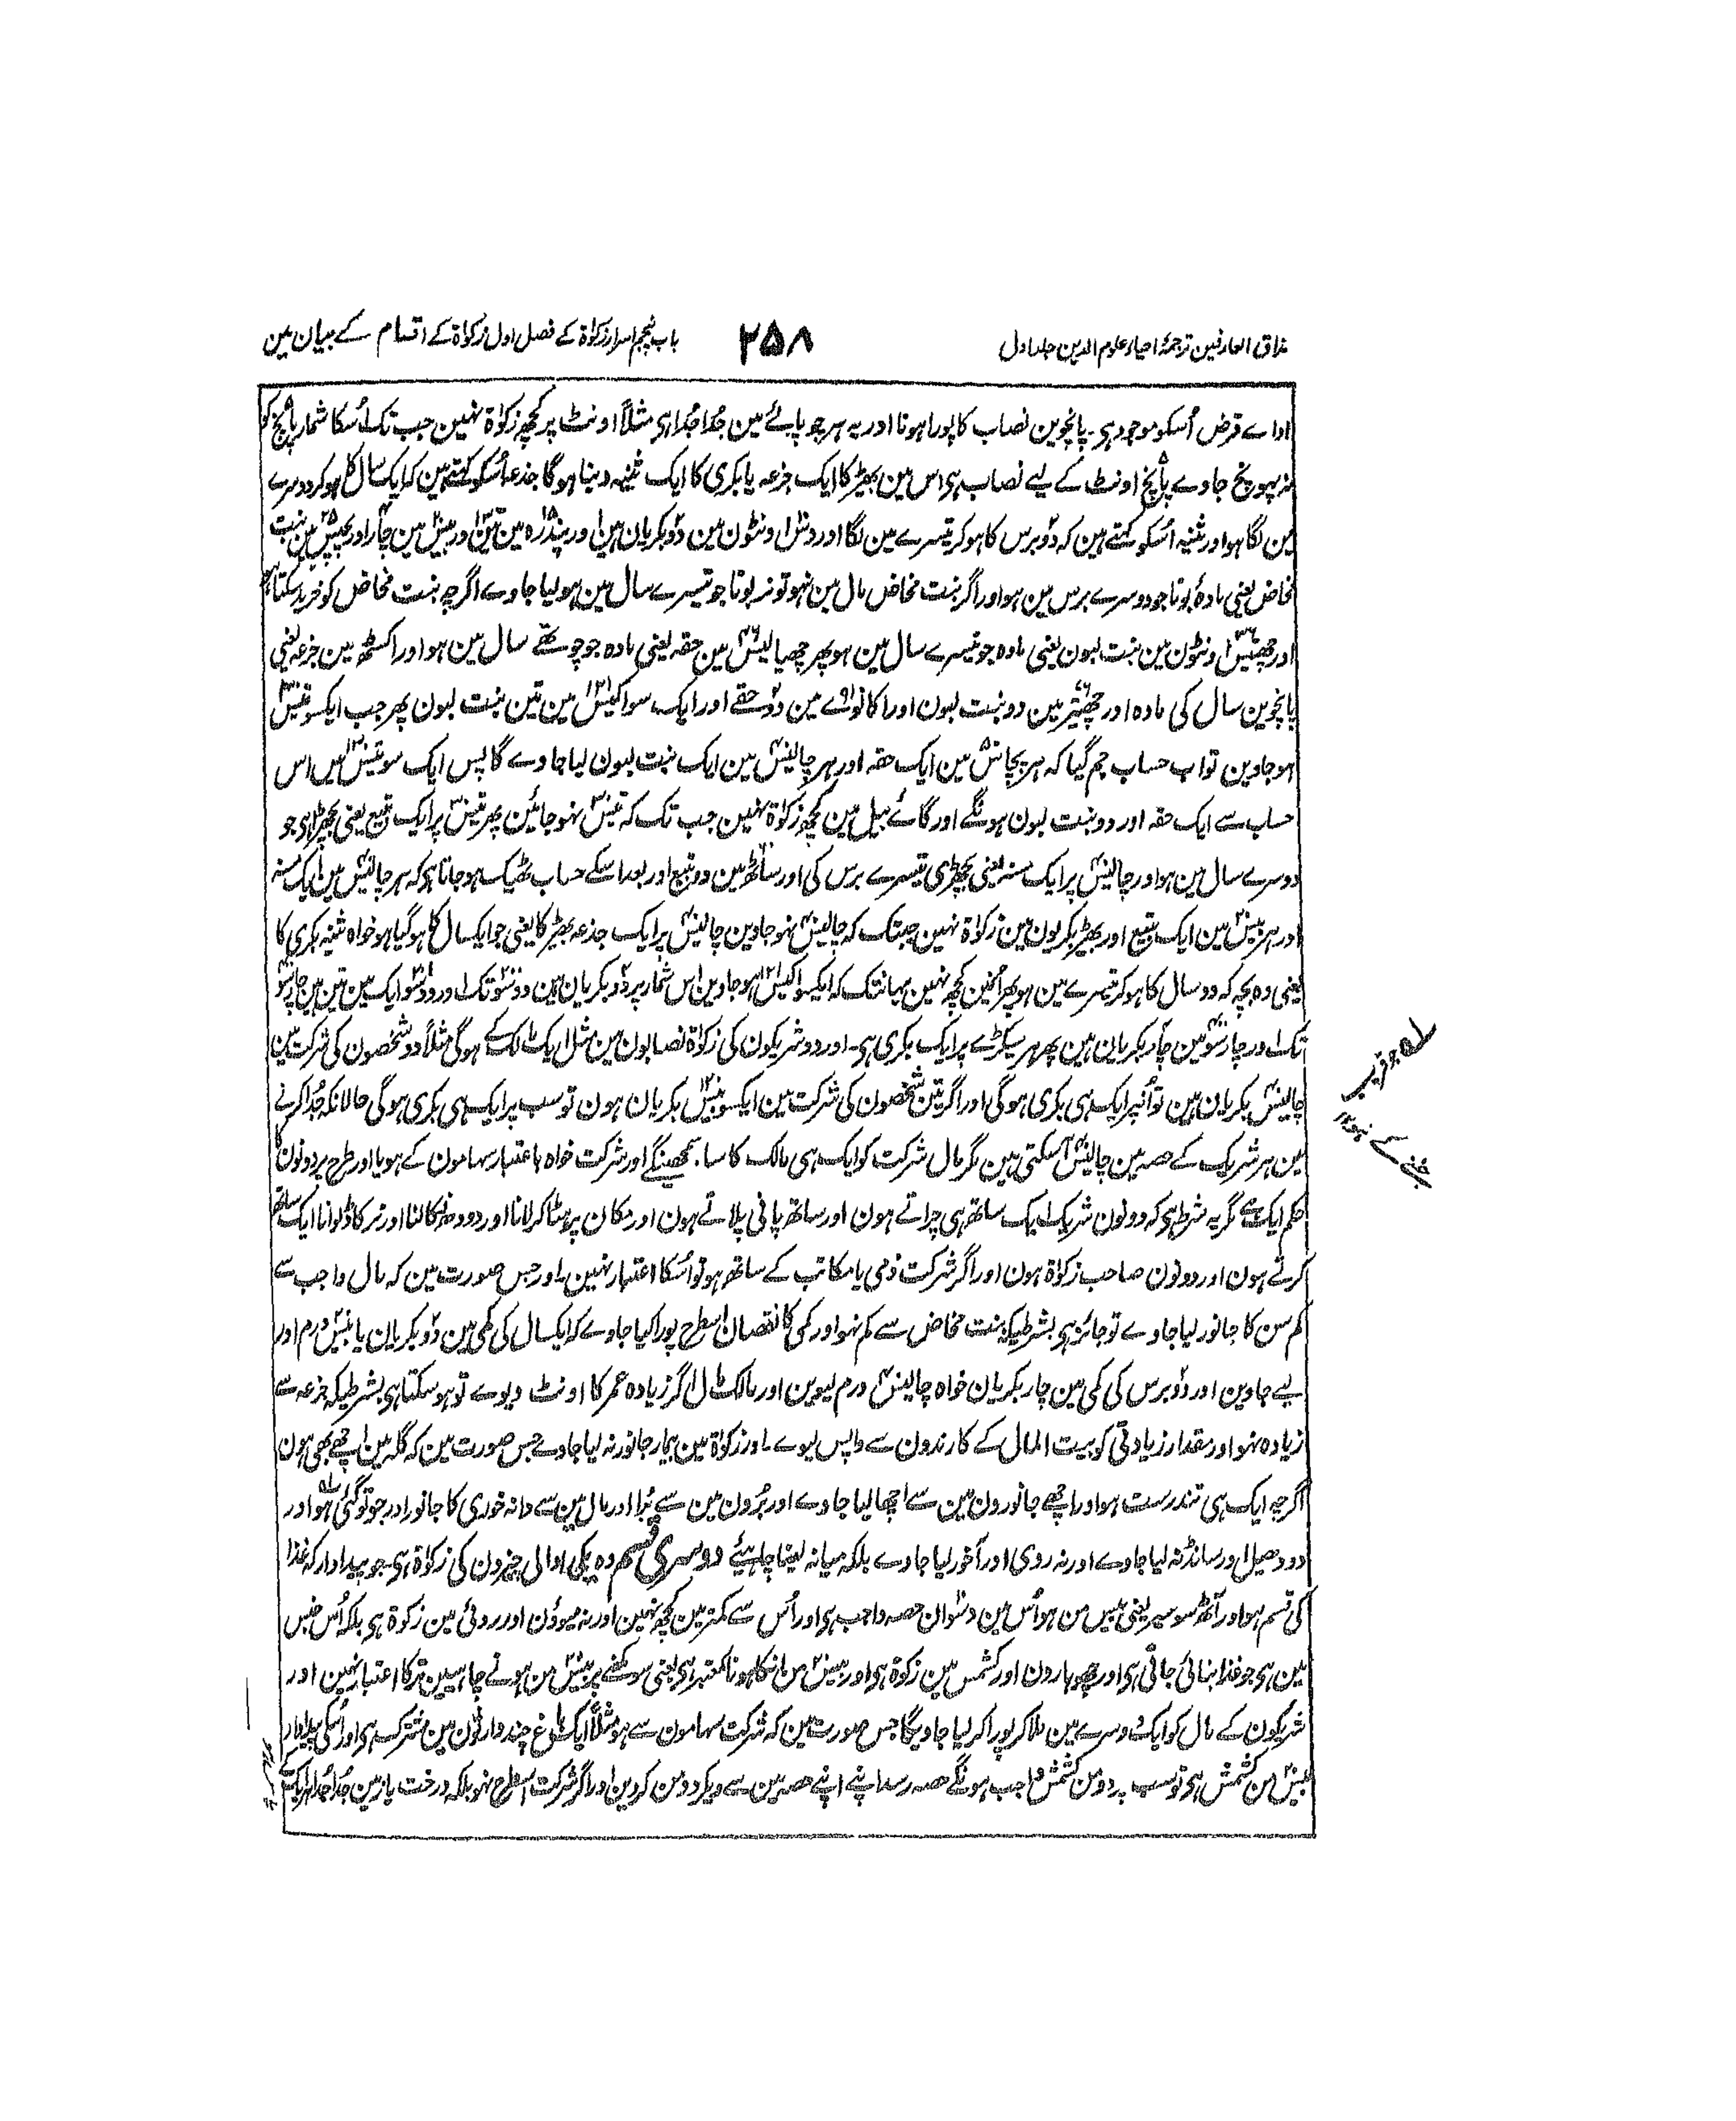 مذاق العارفین ترجمۂ احیاء علوم الدین جلد اول
۲۵۸
باب پنجم اسرار زکوٰۃ کے فصل اول زکوٰۃ کے اقسام کے بیان مین
اداے قرض اُسکو موجود ہی۔ پانچوین نصاب کا پورا ہونا اور یہ ہر چوپائے مین جُدا جُدا ہی مثلاً اونٹ پر کچھ زکوٰۃ نہین جب تک اُسکا شمار پانچ کو
نہ پہونچ جاوے پانچ اونٹ کے لیے نصاب ہی اس مین بھیڑ کا ایک جزعہ یا بکری کا ایک ثنیہ دینا ہوگا جذعہ اُسکو کہتے ہین کہ ایک سال کا ہو کر دوسرے
مین لگا ہو اور ثنیہ اُسکو کہتے ہین کہ دو برس کا ہو کر تیسرے مین لگا اور دس اونٹون مین دو بکریان ہین اور پندرہ مین تین اور بیس مین چار اور پچیس مین بنت
مخاض یعنی مادہ بوتا جو دوسرے برس مین ہو اور اگر بنت مخاض مال مین نہو تو نر بوتا جو تیسرے سال مین ہو لیا جاوے اگرچہ بنت مخاض کو خرید سکتا ہو
اور چھتیس اونٹون مین بنت لبون یعنی مادہ جو تیسرے سال مین ہو پھر چھیالیس مین حقہ یعنی مادہ جو چوتھے سال مین ہو اور اکسٹھ مین جزعہ یعنی
پانچوین سال کی مادہ اور چھہتر مین دو بنت لبون اور اکانوے مین دو حقے اور ایک سو اکیس مین تین بنت لبون پھر جب ایکسو تیس
ہو جاوین تو اب حساب جم گیا کہ ہر پچاس مین ایک حقہ اور ہر چالیس مین ایک بنت لبون لیا جاوے گا پس ایک سو تیس مین اس
حساب سے ایک حقہ اور دو بنت لبون ہونگے اور گائے بیل مین کچھ زکوٰۃ نہین جب تک کہ تیس نہو جائین پھر تیس پر ایک تبیع یعنی بچھڑا ہی جو
دوسرے سال مین ہو اور چالیس پر ایک مسنہ یعنی بچھڑی تیسرے برس کی اور ساٹھ مین دو تبیع اور بعد اسکے حساب ٹھیک ہو جاتا ہی کہ ہر چالیس مین ایک مسنہ
اور ہر تیس مین ایک تبیع اور بھیڑ بکریون مین زکوٰۃ نہین جبتک کہ چالیس نہو جاوین چالیس پر ایک جذعہ بھیڑ کا یعنی جو ایکسال کا ہو گیا ہو خواہ ثنیہ بکری کا
یعنی وہ بچہ کہ دو سال کا ہو کر تیسرے مین ہو پھر اُنمین کچھ نہین یہانتک کہ ایکسو اکیس ہو جاوین اس شمار پر دو بکریان ہین دو سو تک اور دو سو ایک مین تین ہین چار سو
تک اور چار سو مین چار بکریان ہین پھر ہر سیکڑے پر ایک بکری ہی۔ اور دو شریکون کی زکوٰۃ نصابون مین مثل ایک مالک کے ہوگی مثلاً دو شخصون کی شرکت مین
چالیس بکریان ہین تو اُنپر ایک ہی بکری ہوگی اور اگر تین شخصون کی شرکت مین ایکسو بیس بکریان ہون تو سب پر ایک ہی بکری ہوگی حالانکہ جُدا کرنے
مین ہر شریک کے حصہ مین چالیس آسکتی ہین مگر مال شرکت کو ایک ہی مالک کا سا سمجھینگے اور شرکت خواہ باعتبار سہامون کے ہو یا اور طرح پر دونون کا
حکم ایک ہے مگر یہ شرط ہی کہ دونون شریک ایک ساتھ ہی چراتے ہون اور ساتھ پانی پلاتے ہون اور مکان پر ہٹا کر لانا اور دودھ نکالنا اور نر کا ڈلوانا ایک ساتھ
کرتے ہون اور دونون صاحب زکوٰۃ ہون اور اگر شرکت ذمی یا مکاتب کے ساتھ ہو تو اُسکا اعتبار نہین۔ اور جس صورت مین کہ مال واجب سے
کم سن کا جانور لیا جاوے تو جائز ہی بشرطیکہ بنت مخاض سے کم نہو اور کمی کا نقصان اسطرح پورا کیا جاوے کہ ایکسال کی کمی مین دو بکریان یا بیس درم اور
لیے جاوین اور دو برس کی کمی مین چار بکریان خواہ چالیس درم لیوین اور مالک مال اگر زیادہ عمر کا اونٹ دیوے تو ہو سکتا ہی بشرطیکہ جزعہ سے
زیادہ نہو اور مقدار زیادتی کو بیت المال کے کارندون سے واپس لیوے۔ اور زکوٰۃ مین بیمار جانور نہ لیا جاوے جس صورت مین کہ گلہ مین اچھے بھی ہون
اگرچہ ایک ہی تندرست ہو اور اچھے جانورون مین سے اچھا لیا جاوے اور بُرون مین سے بُرا اور مال مین سے دانہ خوری کا جانور اور جو توگنی ہو اور
دودھیل اور سانڈ نہ لیا جاوے اور نہ ردی اور آخور لیا جاوے بلکہ میانہ لینا چاہیئے دوسری قسم دہ یکی والی چیزون کی زکوٰۃ ہی۔ جو پیداوار کہ غذا
کی قسم ہو اور آٹھ سو سیر یعنی بیس من ہو اُس مین دسوان حصہ واجب ہی اور اُس سے کمتر مین کچھ نہین اور نہ میوؤن اور روئی مین زکوۃ ہی بلکہ اُس جنس
مین ہی جو غذا بنائی جاتی ہی اور چھوہارون اور کشمش مین زکوۃ ہی اور بیس من انکا ہونا معتبر ہی یعنی سوکھنے پر بیس من ہونے چاہییین تر کا اعتبار نہین اور
شریکون کے مال کو ایک دوسرے مین ملا کر پورا کر لیا جاویگا جس صورت مین کہ شرکت سہامون سے ہو مثلاً ایک باغ چند وارثون مین مشترک ہی اور اُسکی پیداوار
بیس من کشمش ہی تو سب پر دو من کشمش واجب ہونگے حصہ رسد اپنے اپنے حصہ مین سے دیکر دو من کر دین اور اگر شرکت اسطرح نہو بلکہ درخت یا زمین جُدا جُدا ہر ایک کے